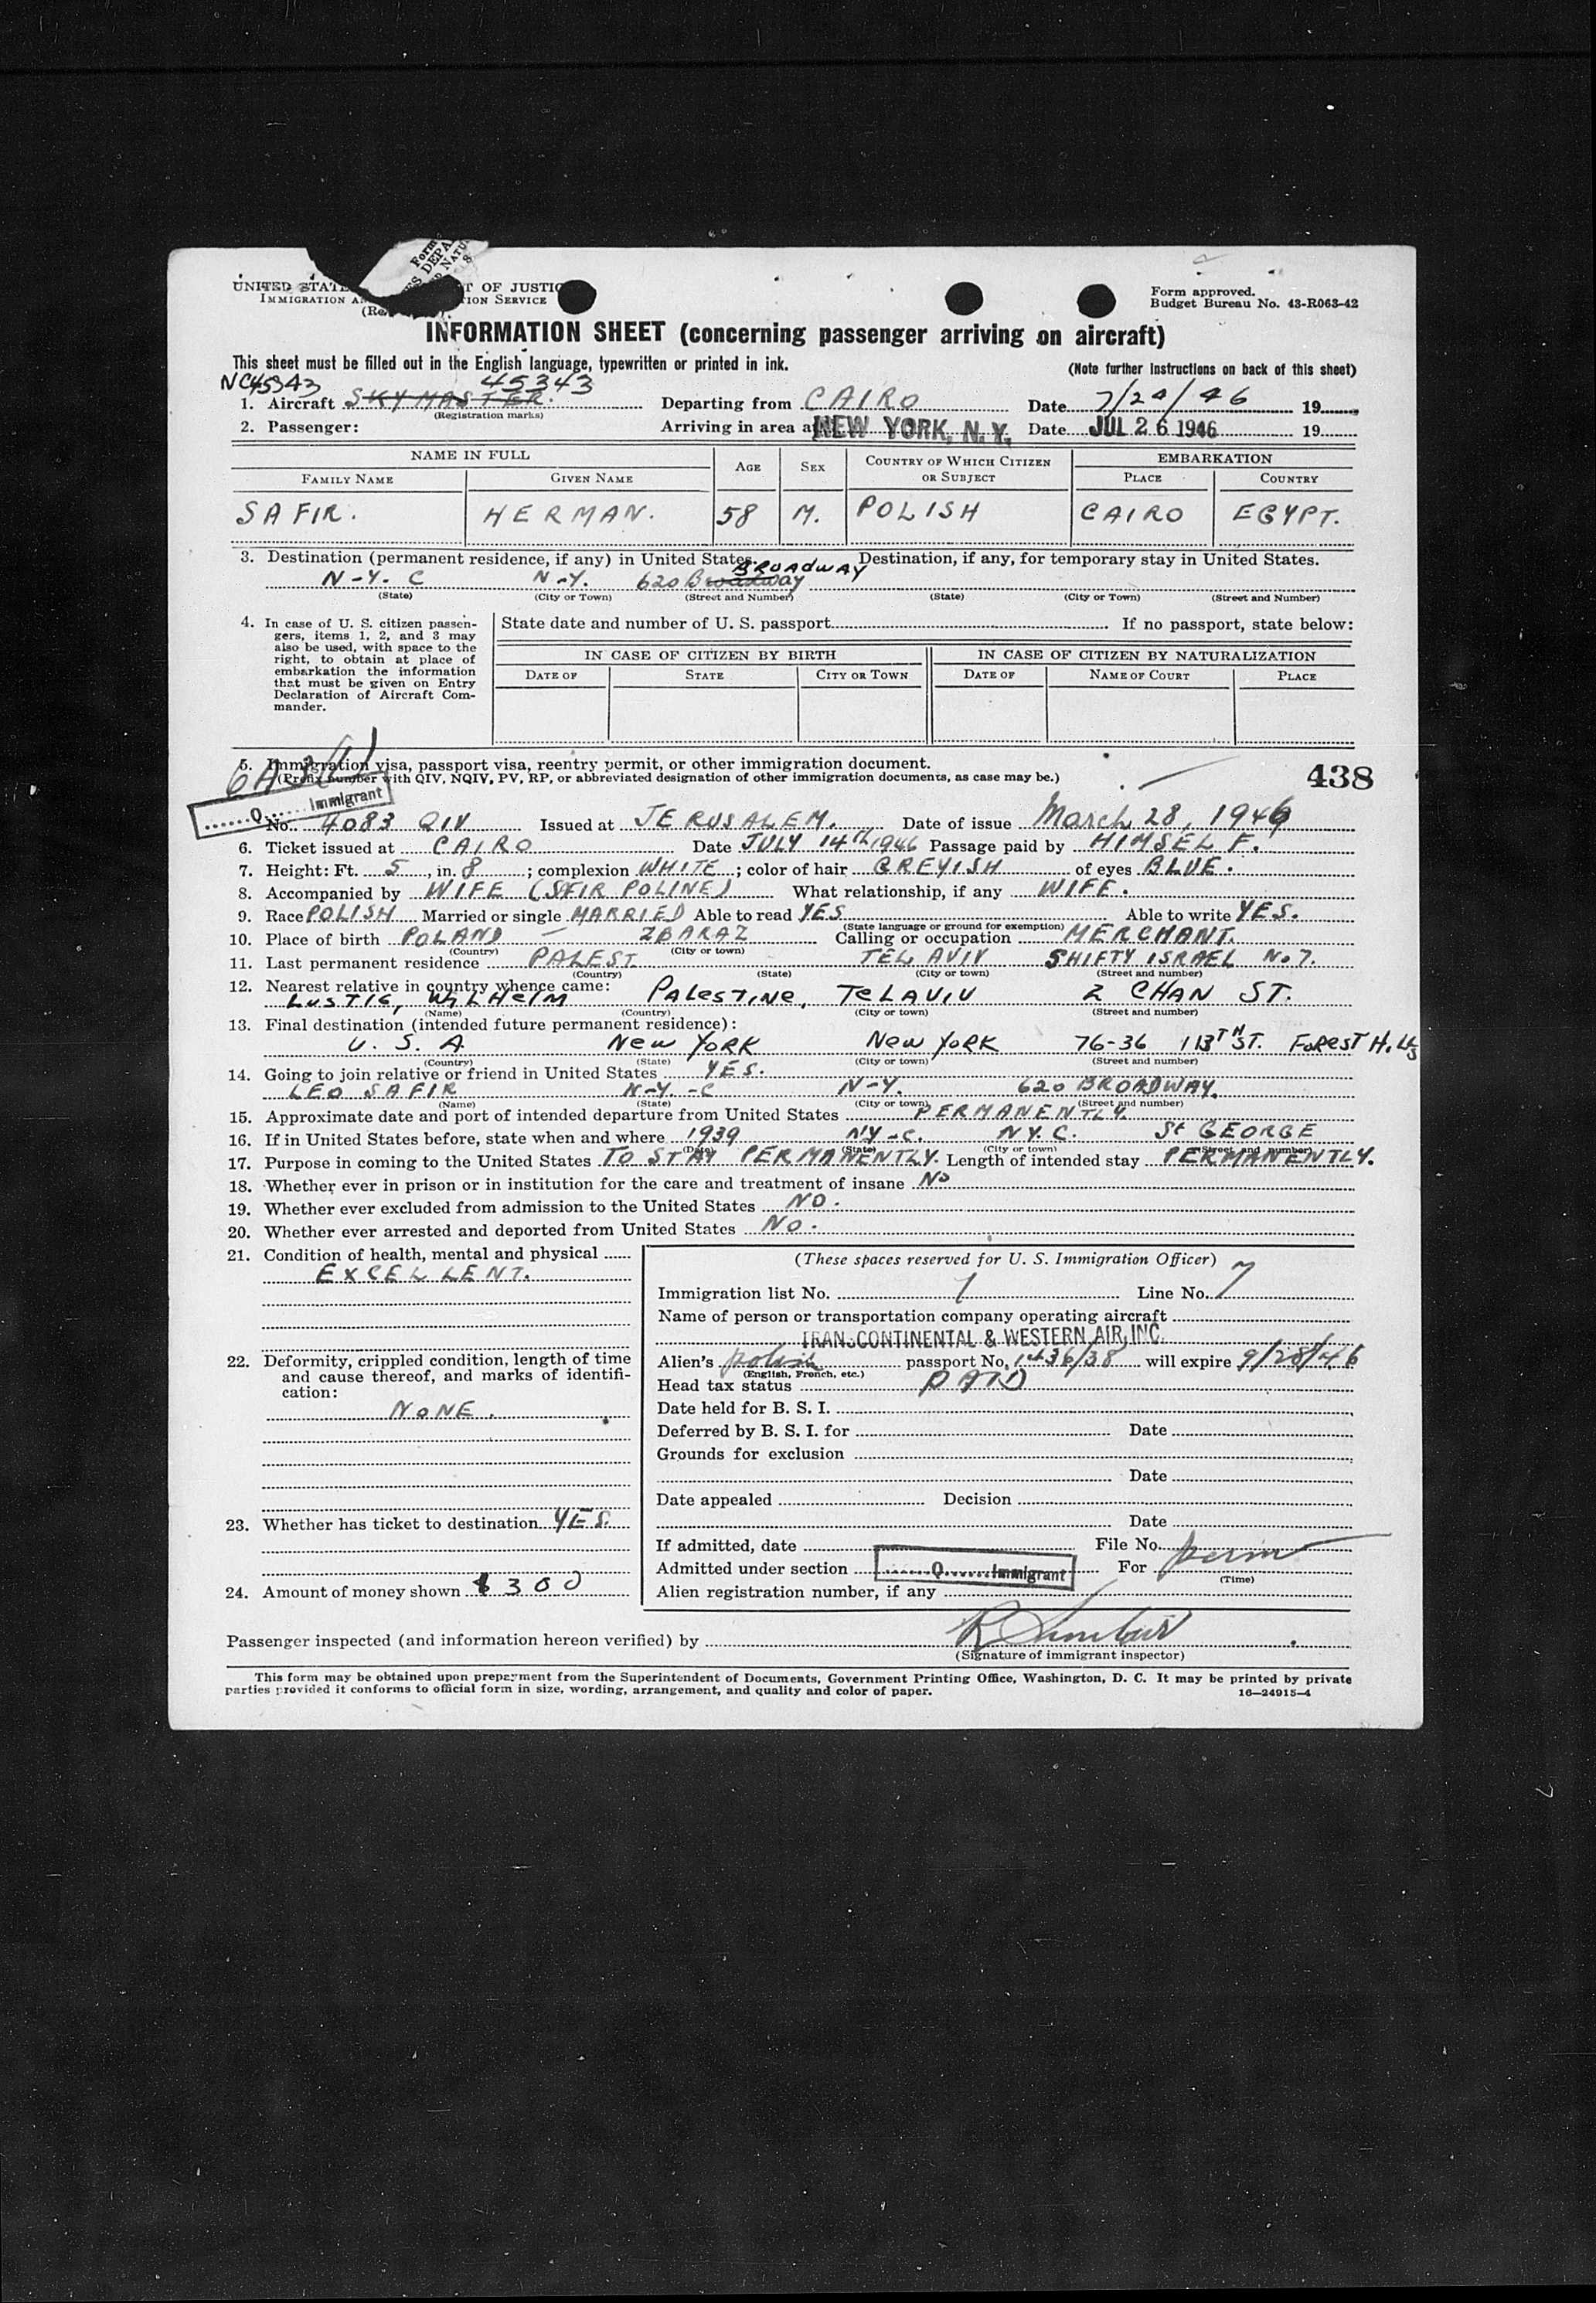 Form
ES DEPA
D NATU
8
UNITED STATE T OF JUSTIC
IMMIGRATION A TION SERVICE
Form approved.
Budget Bureau No. 43-R063-42
INFORMATION SHEET (concerning passenger arriving on aircraft)
This sheet must be filled out in the English language, typewritten or printed in ink.
(Note further instructions on back of this sheet)
NC45343 45343
1. Aircraft SKYMASTER. Departing from CAIRO Date 7/24/46 19
(Registration marks)
2. Passenger: Arriving in area a NEW YORK, N.Y. Date JUL 26 1946 19
NAME IN FULL AGE SEX COUNTRY OF WHICH CITIZEN OR SUBJECT EMBARKATION
FAMILY NAME GIVEN NAME PLACE COUNTRY
SAFIR. HERMAN. 58 M. POLISH CAIRO EGYPT.
3. Destination (permanent residence, if any) in United States. Destination, if any, for temporary stay in United States.
BROADWAY
N-Y. C N-Y. 620 Broadway
(State) (City or Town) (Street and Number) (State) (City or Town) (Street and Number)
4. In case of U. S. citizen passen-
gers, items 1, 2, and 3 may
also be used, with space to the
right, to obtain at place of
embarkation the information
that must be given on Entry
Declaration of Aircraft Com-
mander.
State date and number of U. S. passport If no passport, state below:
IN CASE OF CITIZEN BY BIRTH IN CASE OF CITIZEN BY NATURALIZATION
DATE OF STATE CITY OR TOWN DATE OF NAME OF COURT PLACE
5. Immigration visa, passport visa, reentry permit, or other immigration document.
(Prefix number with QIV, NQIV, PV, RP, or abbreviated designation of other immigration documents, as case may be.)
438
Q Immigrant
No. 4083 QIV Issued at JERUSALEM. Date of issue March 28, 1946
6. Ticket issued at CAIRO Date JULY 14th 1946 Passage paid by HIMSELF.
7. Height: Ft. 5, in. 8; complexion WHITE; color of hair GREYISH of eyes BLUE.
8. Accompanied by WIFE (SFIR POLINE) What relationship, if any WIFE.
9. Race POLISH Married or single MARRIED Able to read YES Able to write YES.
(State language or ground for exemption)
10. Place of birth POLAND - ZBARAZ Calling or occupation MERCHANT.
(Country) (City or town)
11. Last permanent residence PALEST. TEL AVIV SHIFTY ISRAEL No 7.
(Country) (State) (City or town) (Street and number)
12. Nearest relative in country whence came:
LUSTIG, WILHELM PALESTINE, TELAVIV 2 CHAN ST.
(Name) (Country) (City or town) (Street and number)
13. Final destination (intended future permanent residence):
U. S. A. NEW YORK NEW YORK 76-36 113TH ST. FOREST HILLS
(Country) (State) (City or town) (Street and number)
14. Going to join relative or friend in United States YES.
LEO SAFIR N-Y.-C N-Y. 620 BROADWAY.
(Name) (State) (City or town) (Street and number)
15. Approximate date and port of intended departure from United States PERMANENTLY.
16. If in United States before, state when and where 1939 NY-C. N.Y.C. St GEORGE
(Date) (State) (City or town) (Street and number)
17. Purpose in coming to the United States TO STAY PERMANENTLY. Length of intended stay PERMANENTLY.
18. Whether ever in prison or in institution for the care and treatment of insane NO
19. Whether ever excluded from admission to the United States NO.
20. Whether ever arrested and deported from United States NO.
21. Condition of health, mental and physical
EXCELLENT.
22. Deformity, crippled condition, length of time
and cause thereof, and marks of identifi-
cation:
NONE.
23. Whether has ticket to destination YES.
24. Amount of money shown $300
(These spaces reserved for U. S. Immigration Officer)
Immigration list No. 1 Line No. 7
Name of person or transportation company operating aircraft
TRANSCONTINENTAL & WESTERN AIR, INC.
Alien's polish passport No. 1436/38 will expire 9/28/46
(English, French, etc.)
Head tax status PAID
Date held for B. S. I.
Deferred by B. S. I. for Date
Grounds for exclusion
Date
Date appealed Decision
Date
If admitted, date File No.
Admitted under section Q Immigrant For perm
(Time)
Alien registration number, if any
Passenger inspected (and information hereon verified) by
(Signature of immigrant inspector)
This form may be obtained upon prepayment from the Superintendent of Documents, Government Printing Office, Washington, D. C. It may be printed by private
parties provided it conforms to official form in size, wording, arrangement, and quality and color of paper. 16—24915-4